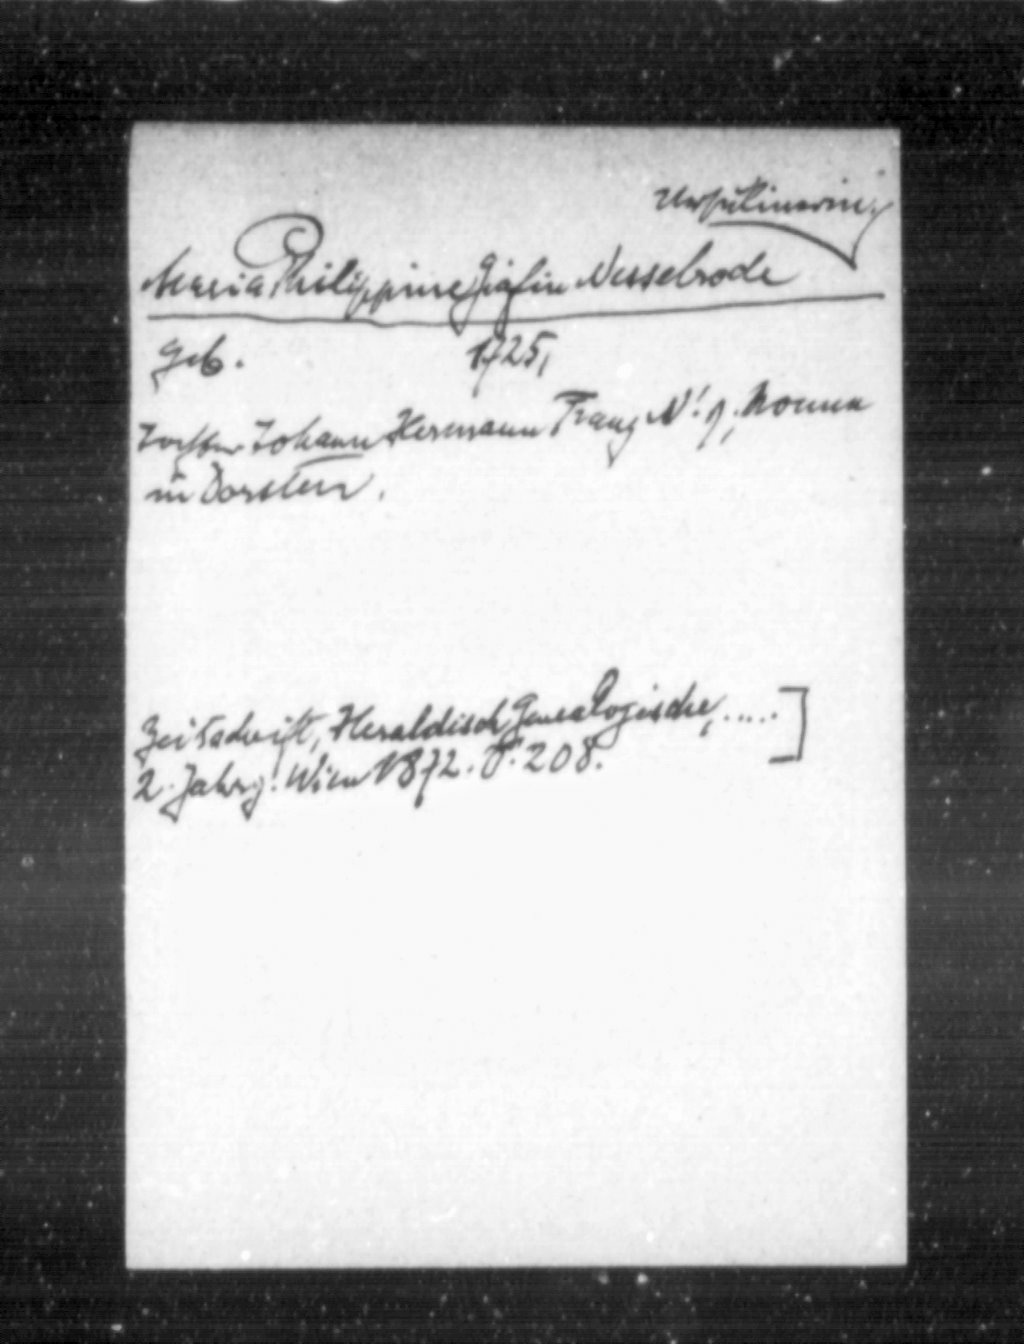 Ursulinerin
Maria Philippine Gräfin Nesselrode
geb. 1725,
Tochter Johann Hermann Franz N! g, Nonne
in Dorsten.
Zeitschrift, Heraldisch Genealogische, .....]
2. Jahrg. Wien 1872. S. 208.